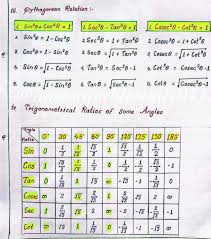 iii. Pythagorean Relation :-
1. Sin²θ + Cos²θ = 1 1. Sec²θ - Tan²θ = 1 1. Cosec²θ - Cot²θ = 1
2. Sin²θ = 1 - Cos²θ 2. Sec²θ = 1 + Tan²θ 2. Cosec²θ = 1 + Cot²θ
3. Cos²θ = 1 - Sin²θ 3. Tan²θ = Sec²θ - 1 3. Cot²θ = Cosec²θ - 1
4. Sinθ = √1 - Cos²θ 4. Secθ = √1 + Tan²θ 4. Cosecθ = √1 + Cot²θ
5. Cosθ = √1 - Sin²θ 5. Tanθ = √Sec²θ - 1 5. Cotθ = √Cosec²θ - 1
Trigonometrical Ratios of Some Angles
Angle Ratio 0° 30° 45° 60° 90° 120° 135° 150° 180°
Sin 0 1/2 1/√2 √3/2 1 √3/2 1/√2 1/2 0
Cos 1 √3/2 1/√2 1/2 0 -1/2 -1/√2 -√3/2 -1
Tan 0 1/√3 1 √3 ∞ -√3 -1 -1/√3 0
Cot ∞ √3 1 1/√3 0 -1/√3 -1 -√3 ∞
Sec 1 2/√3 √2 2 ∞ -2 -√2 -2/√3 -1
Cosec ∞ 2 √2 2/√3 1 2/√3 √2 2 ∞